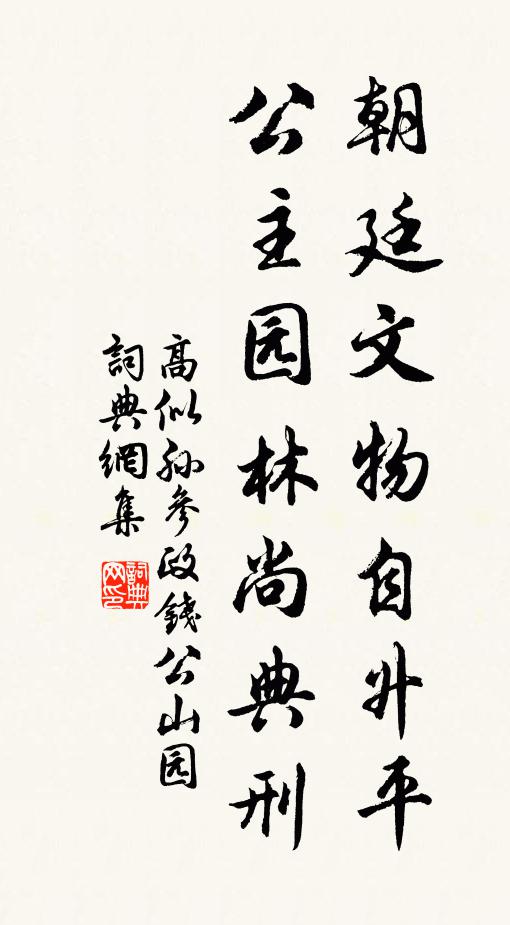 朝廷文物自升平
公主园林尚典刑
高似孙参政錢公山园
詞典網集
詞典网印